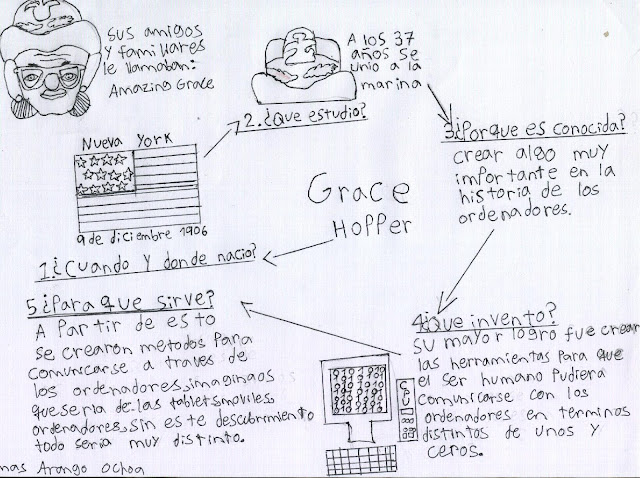 sus amigos
y familiares
le llamaban:
Amazing Grace
A los 37
años se
unio a la
marina
2.¿Que estudio?
3¿Porque es conocida?
crear algo muy
importante en la
historia de los
ordenadores.
Nueva York
9 de diciembre 1906
Grace
Hopper
1.¿Cuando y donde nacio?
5¿Para que sirve?
A Partir de esto
se crearon metodos Para
comunicarse a traves de
los ordenadores, imaginaos
que seria de las tablets, moviles,
ordenadores, sin este descubrimiento
todo seria muy distinto.
4¿Que invento?
su mayor logro fue crear
las herramientas para que
el ser humano Pudiera
comunicarse con los
ordenadores en terminos
distintos de unos y
ceros.
CPU
Arango Ochoa